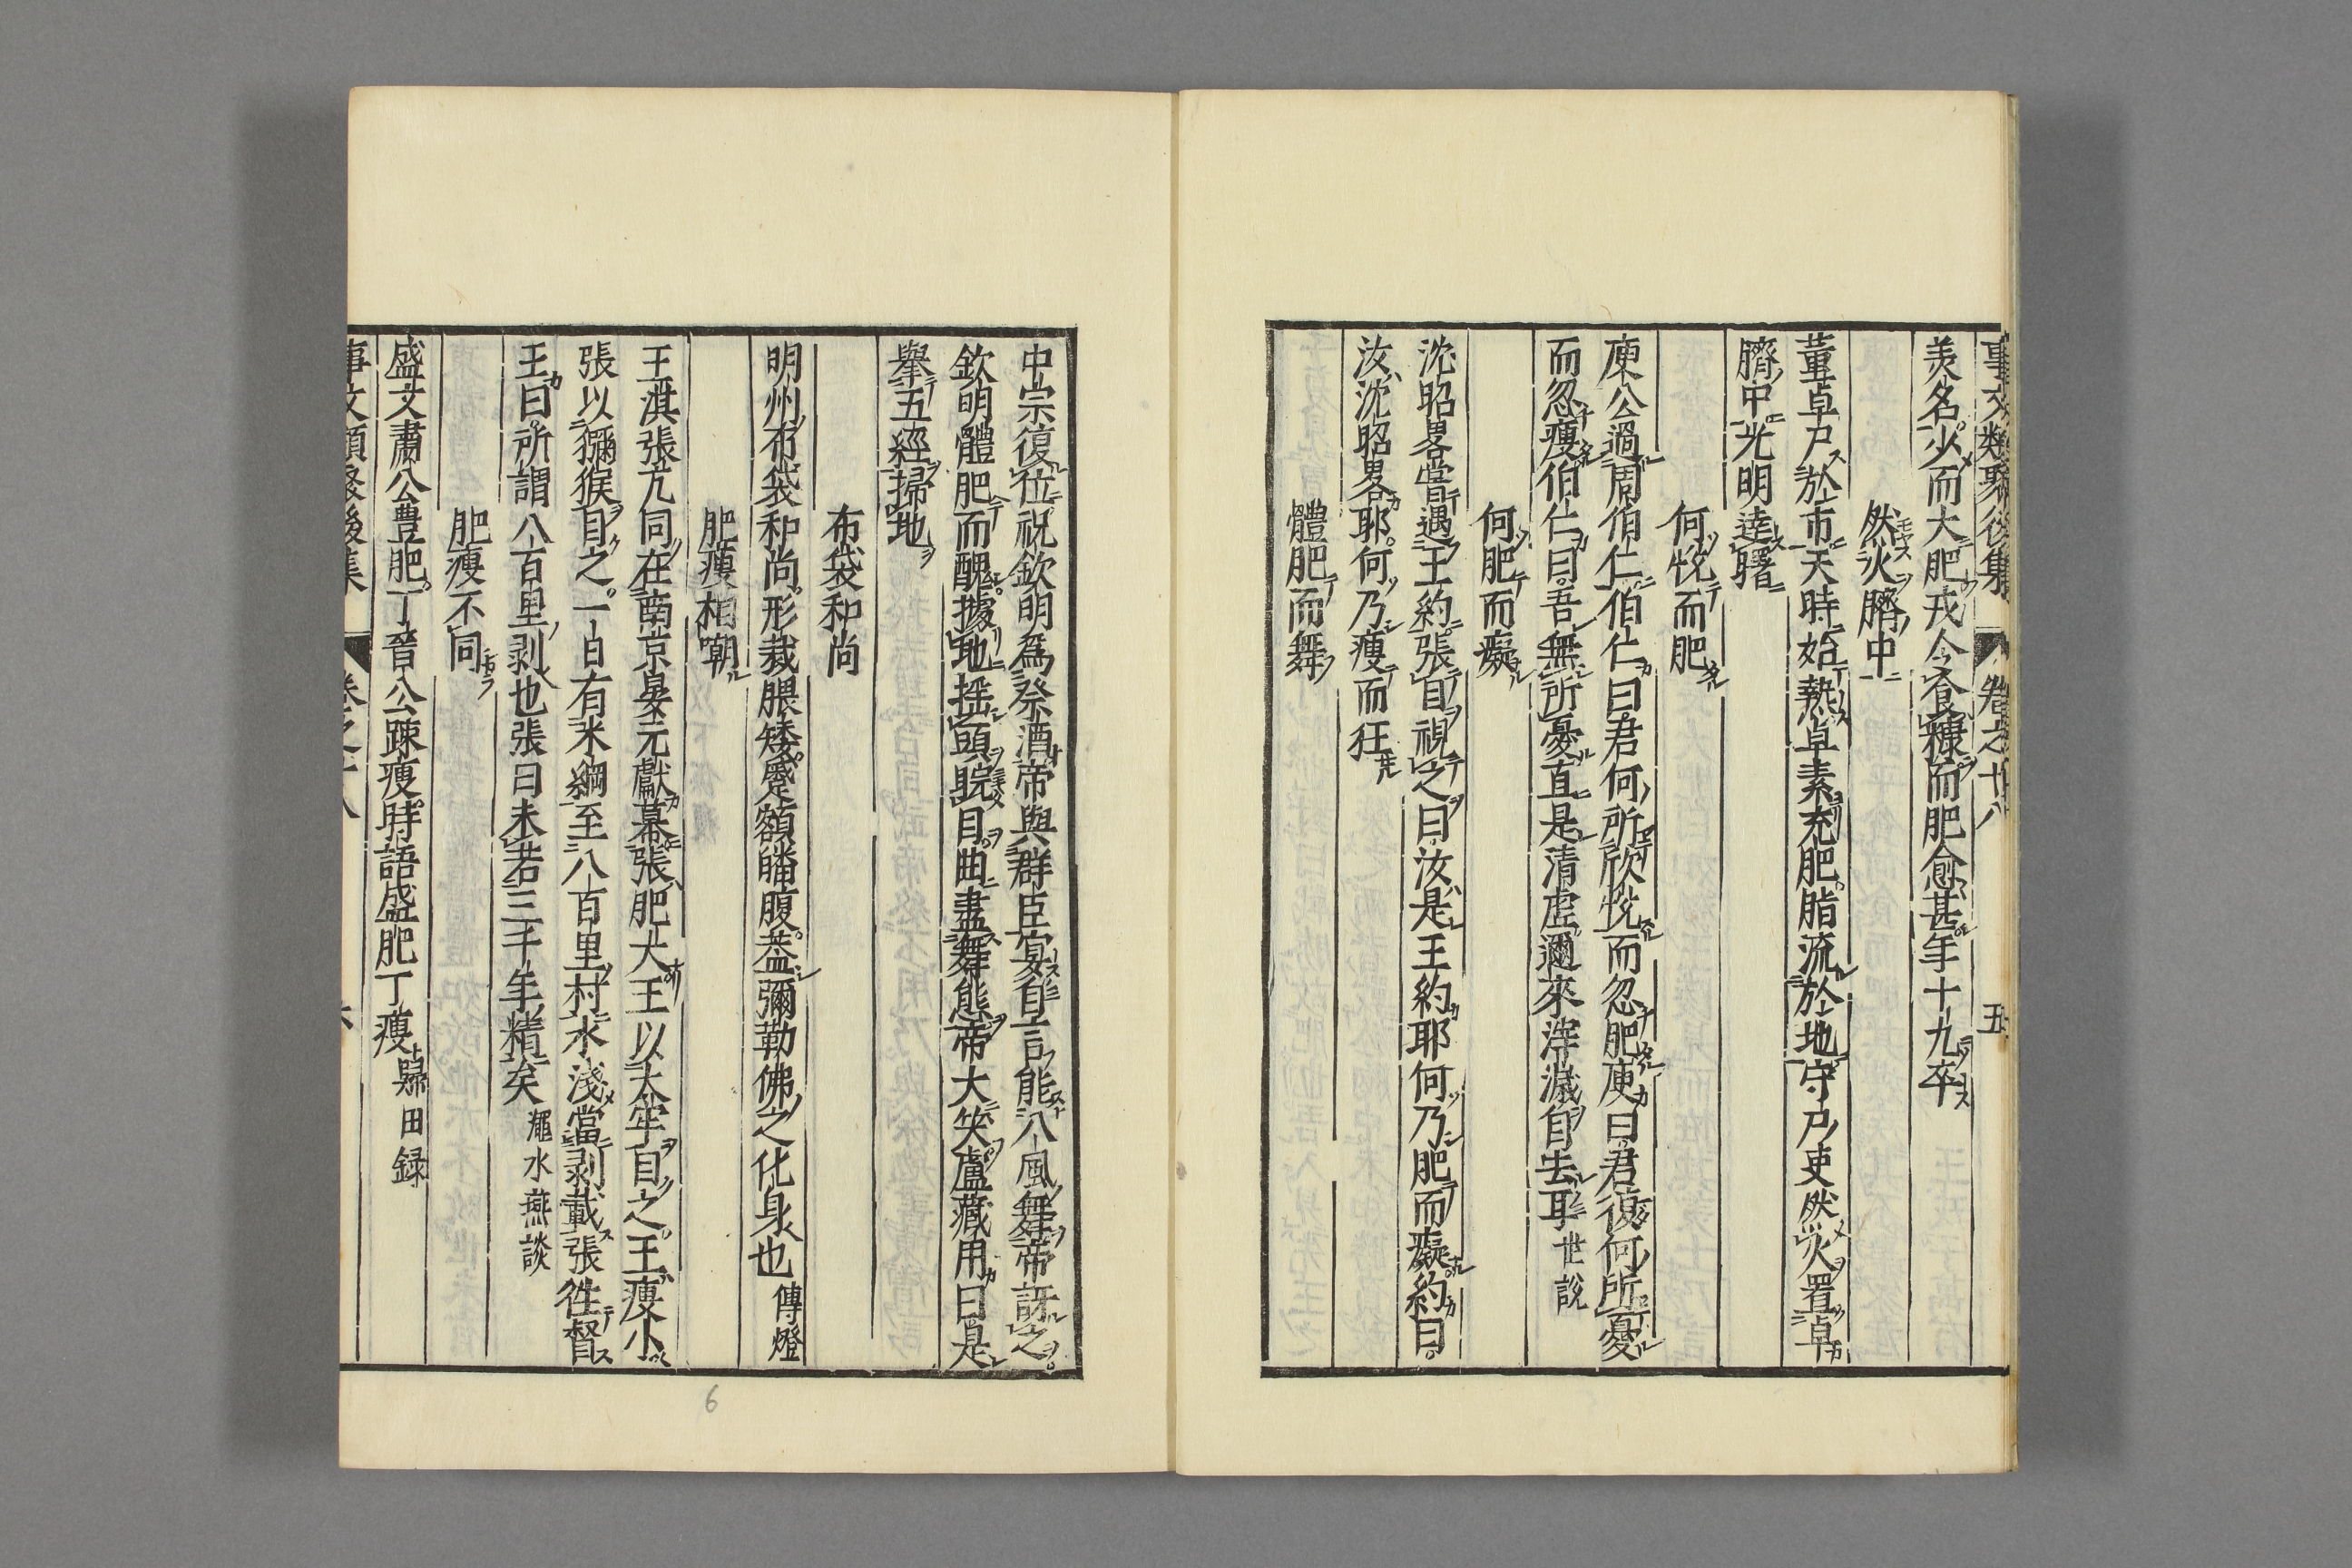 事文類聚後集 卷之十八 五
羙名少而大肥戎令食糠而肥愈甚年十九卒
然火臍中
董卓尸於市天時始熱卓素充肥脂流於地守尸吏然火置卓
臍中光明達曙
何悅而肥
庾公過周伯仁伯仁曰君何所欣悅而忽肥庾曰君復何所憂
而忽瘦伯仁曰吾無所憂直是清虛邇來滓濊自去耳世說
何肥而癡
沈昭畧嘗遇王約張目視之曰汝是王約耶何乃肥而癡約曰
汝沈昭畧耶何乃瘦而狂
體肥而舞
中宗復位祝欽明爲祭酒帝與群臣宴自言能八風舞帝許之
欽明體肥而醜據地揺頭睆目曲盡舞態帝大笑盧藏用曰是
舉五經掃地
布袋和尚
明州布袋和尚形裁腲矮蹙額皤腹葢彌勒佛之化身也傳燈
肥瘦相嘲
王淇張亢同在南京晏元獻幕張肥大王以太牢目之王瘦小
張以獼猴目之一日有米綱至八百里村水淺當剥載張徃督
王曰所謂八百里剥也張曰未若三千年精矣澠水燕談
肥瘦不同
盛文肅公豊肥丁晉公踈瘦時語盛肥丁瘦歸田録
事文類聚後集 卷之十八 六